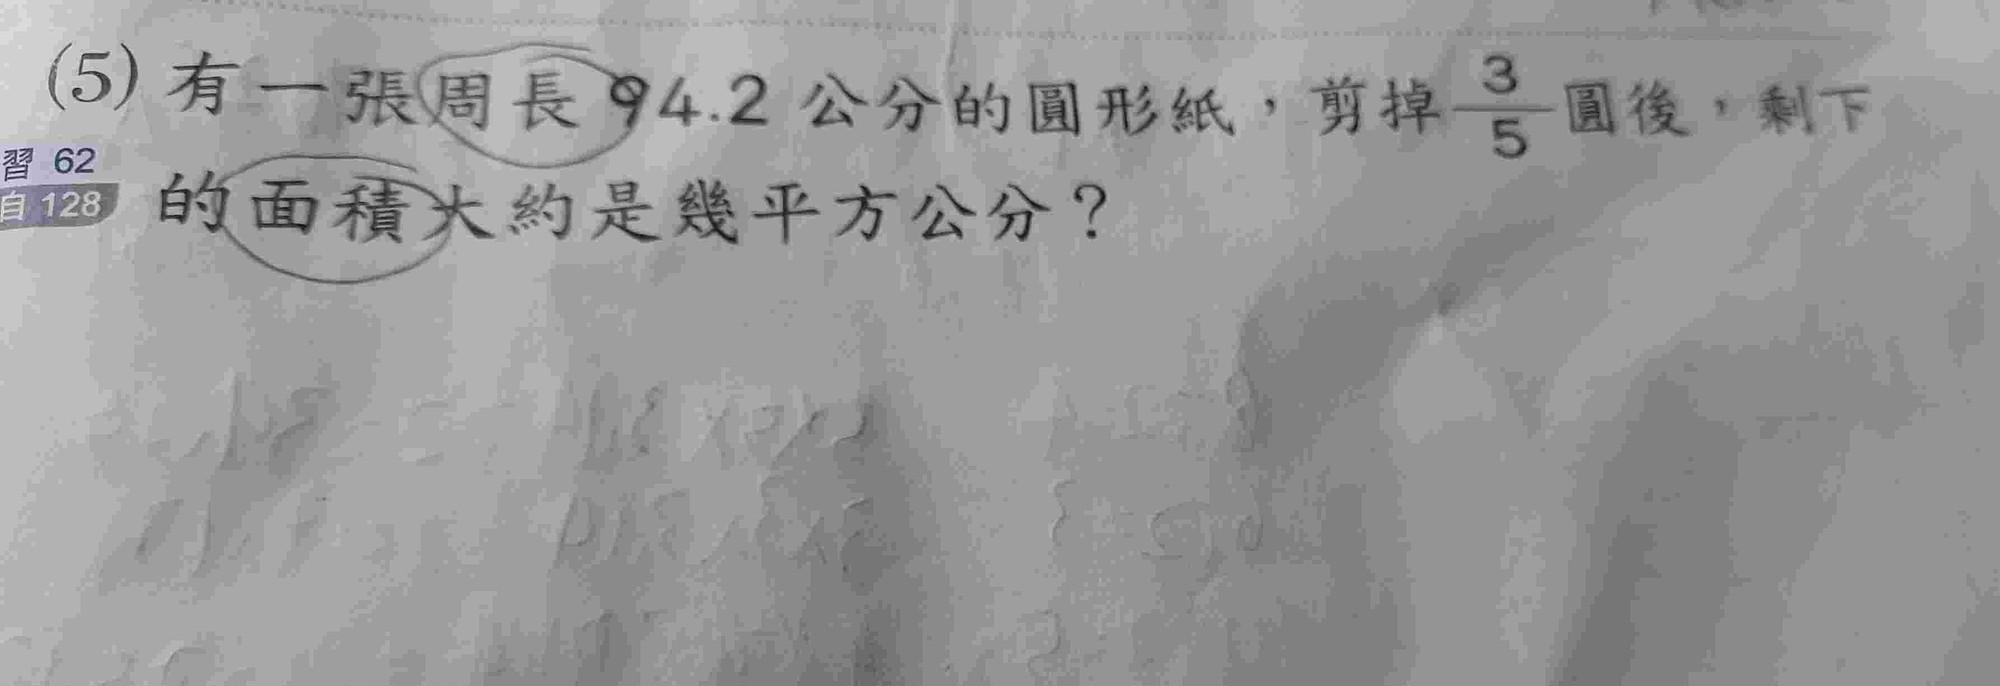 (5) 有一張周長94.2公分的圓形紙，剪掉3/5圓後，剩下
習 62
自 128
的面積大約是幾平方公分？